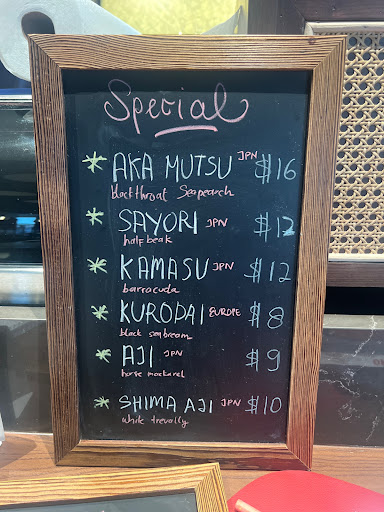 Special
* AKA MUTSU JPN $16
blackthroat Seaperch
* SAYORI JPN $12
half beak
* KAMASU JPN $12
barracuda
* KURODAI EUROPE $8
black seabream
* AJI JPN $9
horse mackarel
* SHIMA AJI JPN $10
white trevally